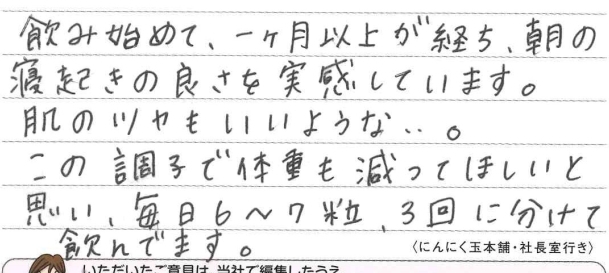 飲み始めて、一ヶ月以上が経ち、朝の
寝起きの良さを実感しています。
肌のツヤもいいような‥。
この調子で体重も減ってほしいと
思い、毎日6〜7粒、3回に分けて
飲んでます。
〈にんにく玉本舗・社長室行き〉
いただいたご意見は、当社で編集したうえ